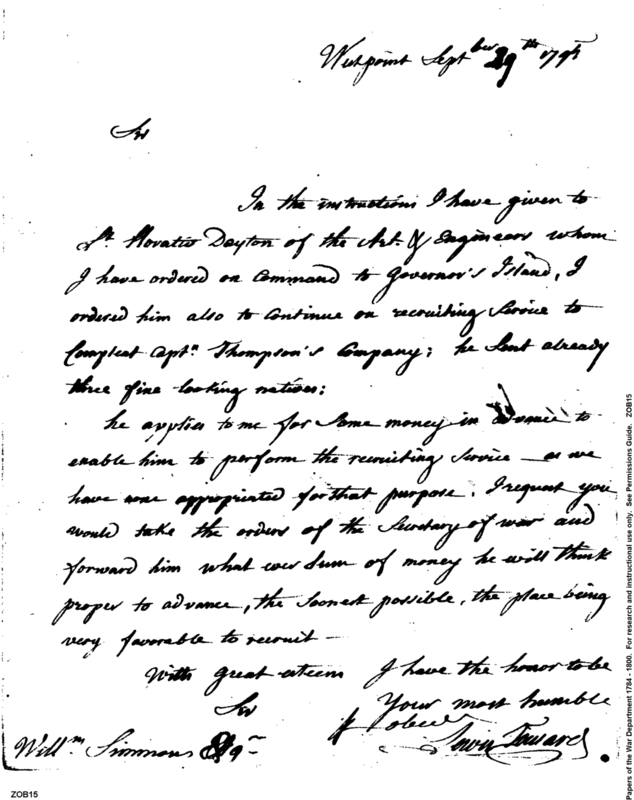 Westpoint Sept ber 29th 1795
Sir
In the instructions I have given to
Lt. Horatio Dayton of the Art. & Engineers whom
I have ordered on Command to Governor's Island, I
ordered him also to Continue on recruiting Service to
Compleat Captn. Thompson's Company; he Sent already
three fine looking natives;
he applies to me for Some money in advance to
enable him to perform the recruiting Service — as we
have none appropriated for that purpose. I request you
would take the orders of the Secretary of war and
forward him what ever Sum of money he will think
proper to advance, the Soonest possible, the place being
very favorable to recruit —
With great esteem I have the honor to be
Sir Your most humble
& obed
Willm Simmons Esqr Lewis Tousard
ZOB15
Papers of the War Department 1784 - 1800. For research and instructional use only. See Permissions Guide. ZOB15